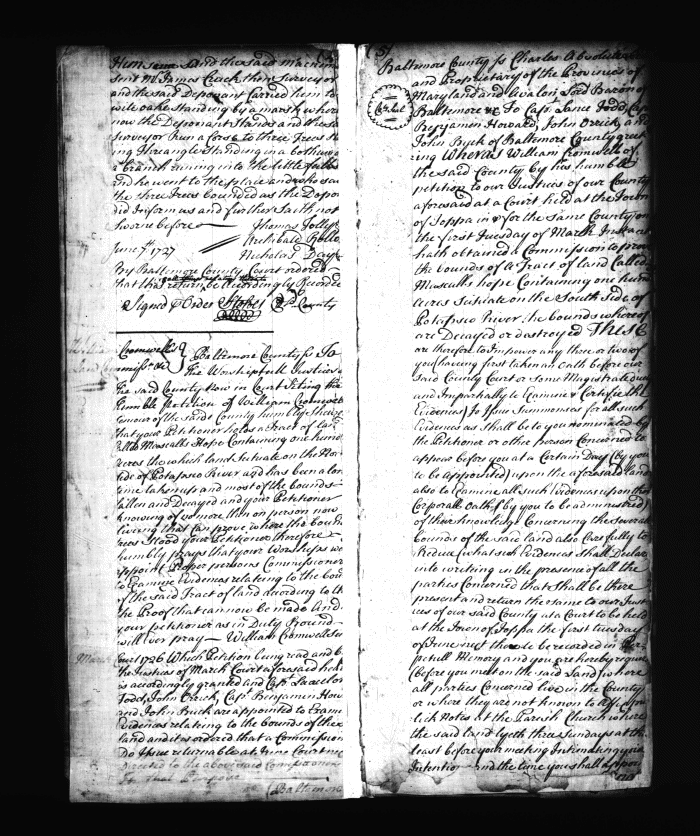 Them and the said
sent Mr James Crack then Surveyor
and the said Deponant Carried them to
wite oake Standing by a marsh where
now the Deponant Stands and the sd
surveyor Run a Corse to three Trees
ing Streangle Standing in a
a branch runing into the little falls
and he went to the place and who saw
the three Trees bounded as the Depon
did Inform us and further Saith not
sworne before — Thomas Tolley
Archibald Rollo
June 7th 1727 Nicholas Day
By Baltimore County Court ordered
that this return be Accordingly Recorded
Signed p Order County
Cromwells } Baltimore County ss To
Commiss The Worshipfull Justices
The said County Now in Court Siting the
Humble Petition of William Cromwell
of the said County humbly Sheweth
that your Petitioner holds a Tract of land
Called Mascalls Hope Containing one hund
acres the which land Situate on the Nor
side of Potapsco River and has been a lon
time taken up and most of the bounds
fallen and Decayed and your Petitioner
knowing of no more then on person now
liveing that Can prove where the boun
trees Stood your Petitioner therefore
humbly prays that your Worships wo
appoint Proper persons Commissioner
to Examine Evidences relating to the bou
of the said Tract of land according to th
the Proof that can now be made And
your petitioner as in Duty Bound
will ever pray — William Cromwell
March Court 1726 Which Petition being read and
the Justices of March Court aforesaid
is accordingly granted and Capt
Todd John Orrick, Capt. Benjamin How
and John Buck are appointed to Exam
Evidences relating to the bounds of the
land and it is ordered that a Commission
Do Issue returnable at June Court next
directed to the abovesaid Commissioners
to that Purpose
(Baltimore
Baltimore County ss Charles Absolute
and Proprietary of the Provinces of
Maryland and Avalon Lord Baron of
Baltimore &c To Capt Lance Todd Capt
Benjamin Howard, John Orrick, and
John Buck of Baltimore County greet
ing Whereas William Cromwell of
the said County by his humble
petition to our Justices of our County
aforesaid at a Court held at the Town
of Joppa in & for the same County on
the first Tuesday of March Instant
hath obtained a Commission to prove
the bounds of a Tract of land Called
Mascalls hope Containing one hund
acres Situate on the South side of
Potapsco River the bounds whereof
are Decayed or destroyed THESE
are therefore to Impower any three or two of
you haveing first taken an Oath before our
Said County Court or Some Magistrate
and Impartially to Examine & Certifie the
Evidences To Issue Summonses for all such
Evidences as Shall be to you nominated by
the Petitioner or other person Concerned to
appear before you at a Certain Day (by you
to be appointed) upon the aforesaid land
also to Examine all such Evidences upon their
Corporall Oaths (by you to be administred)
of their knowledge Concerning the several
bounds of the said land also Carefully to
Reduce what such Evidences Shall Declare
into writeing in the presence of all the
parties Concerned that Shall be there
present and return the same to our Just
ices of our said County at a Court to be held
at the Town of Joppa the first tuesday
of June next there to be recorded in Per
petuall Memory and you are hereby required
(before you meet on the said land) where
all parties Concerned live in the County
or where they are not known to
lick Notes at the Parish Church where
the said land lyeth three Sundays at the
least before your meeting Intimating your
Intention and the time you shall appoint